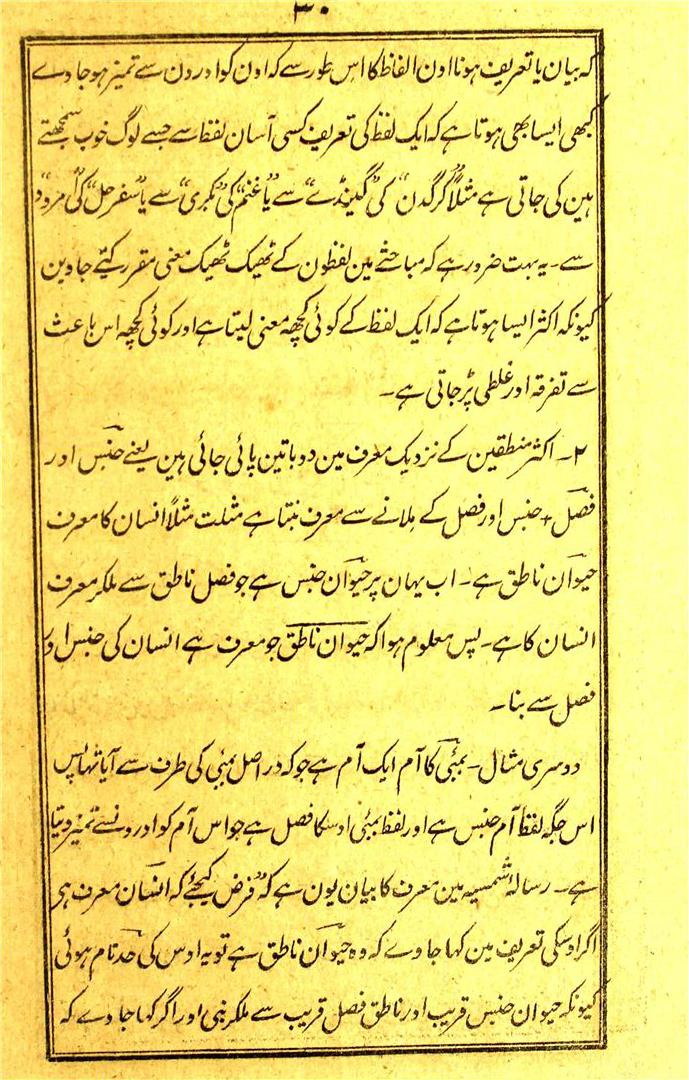 ۳۰
کہ بیان یا تعریف ہونا اون الفاظ کا اس طور سے کہ اون کو اور دن سے تمیز ہو جاوے
کبھی ایسا بھی ہوتا ہے کہ ایک لفظ کی تعریف کسی آسان لفظ سے جسے لوگ خوب سمجھتے
ہین کی جاتی ہے مثلاً "کرگدن" کی "گینڈے" سے یا "غنم" کی "بکری" سے یا "سفرجل" کی "امرود"
سے ۔ یہ بہت ضرور ہے کہ مباحثے مین لفظون کے ٹھیک ٹھیک معنی مقرر کیے جاوین
کیونکہ اکثر ایسا ہوتا ہے کہ ایک لفظ کے کوئی کچھہ معنی لیتا ہے اور کوئی کچھہ اس باعث
سے تفرقہ اور غلطی پڑ جاتی ہے ۔
۲ ۔ اکثر منطقین کے نزدیک معرف مین دو باتین پائی جائی ہین یعنے جنس اور
فصل + جنس اور فصل کے ملانے سے معرف بنتا ہے مثلت مثلاً انسان کا معرف
حیوان ناطق ہے ۔ اب یہان پر حیوان جنس ہے جو فصل ناطق سے ملکر معرف
انسان کا ہے ۔ پس معلوم ہوا کہ حیوان ناطق جو معرف ہے انسان کی جنس اور
فصل سے بنا ۔
دوسری مثال ۔ بمبئی کا آم ایک آم ہے جو کہ در اصل بمبئی کی طرف سے آیا تھا پس
اس جگہ لفظ آم جنس ہے اور لفظ بمبئی اوسکا فصل ہے جو اس آم کو اورونسے تمیز دیتا
ہے ۔ رسالہ شمسیہ مین معرف کا بیان یون ہے کہ "فرض کیجئے کہ انسان معرف ہی
اگر اوسکی تعریف مین کہا جاوے کہ وہ حیوان ناطق ہے تو یہ اوس کی حد تام ہوئی
کیونکہ حیوان جنس قریب اور ناطق فصل قریب سے ملکر بنی اور اگر کہا جاوے کہ